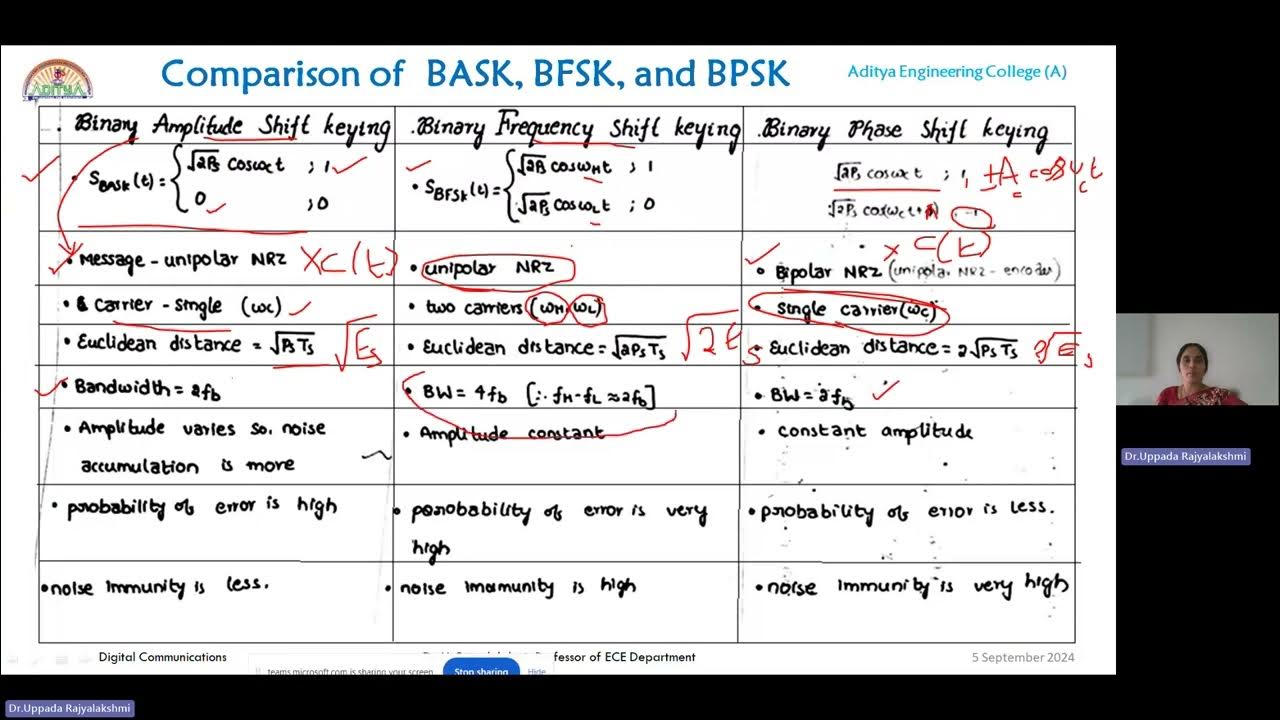 Comparison of BASK, BFSK, and BPSK
Aditya Engineering College (A)
ADITYA
. Binary Amplitude Shift keying
.Binary Frequency Shift keying
.Binary Phase Shift keying
• S_BASK(t) = { √2Ps cosωct ; 1
0 ; 0
• S_BFSK(t) = { √2Ps cosωHt ; 1
√2Ps cosωLt ; 0
√2Ps cosωct ; 1, ±A cosωct
√2Ps cos(ωct+π) -1
• Message - unipolar NRZ XC(t)
• unipolar NRZ
x C(t)
• Bipolar NRZ (unipolar NRZ - encoder)
• Carrier - single (ωc)
• two carriers (ωH, ωL)
• single carrier(ωc)
• Euclidean distance = √PsTs √Es
• Euclidean distance = √2PsTs √2Es
• Euclidean distance = 2√PsTs 2√Es
• Bandwidth = 2fb
• BW = 4fb [∵ fH-fL ≈ 2fb]
• BW = 2fb
• Amplitude varies so. noise
accumulation is more
• Amplitude constant
• constant amplitude
• probability of error is high
• porobability of error is very
high
• probability of error is less.
• noise immunity is less.
• noise imamunity is high
• noise immunity is very high
Digital Communications
Professor of ECE Department
5 September 2024
teams.microsoft.com is sharing your screen.
Stop sharing
Hide
Dr.Uppada Rajyalakshmi
Dr.Uppada Rajyalakshmi